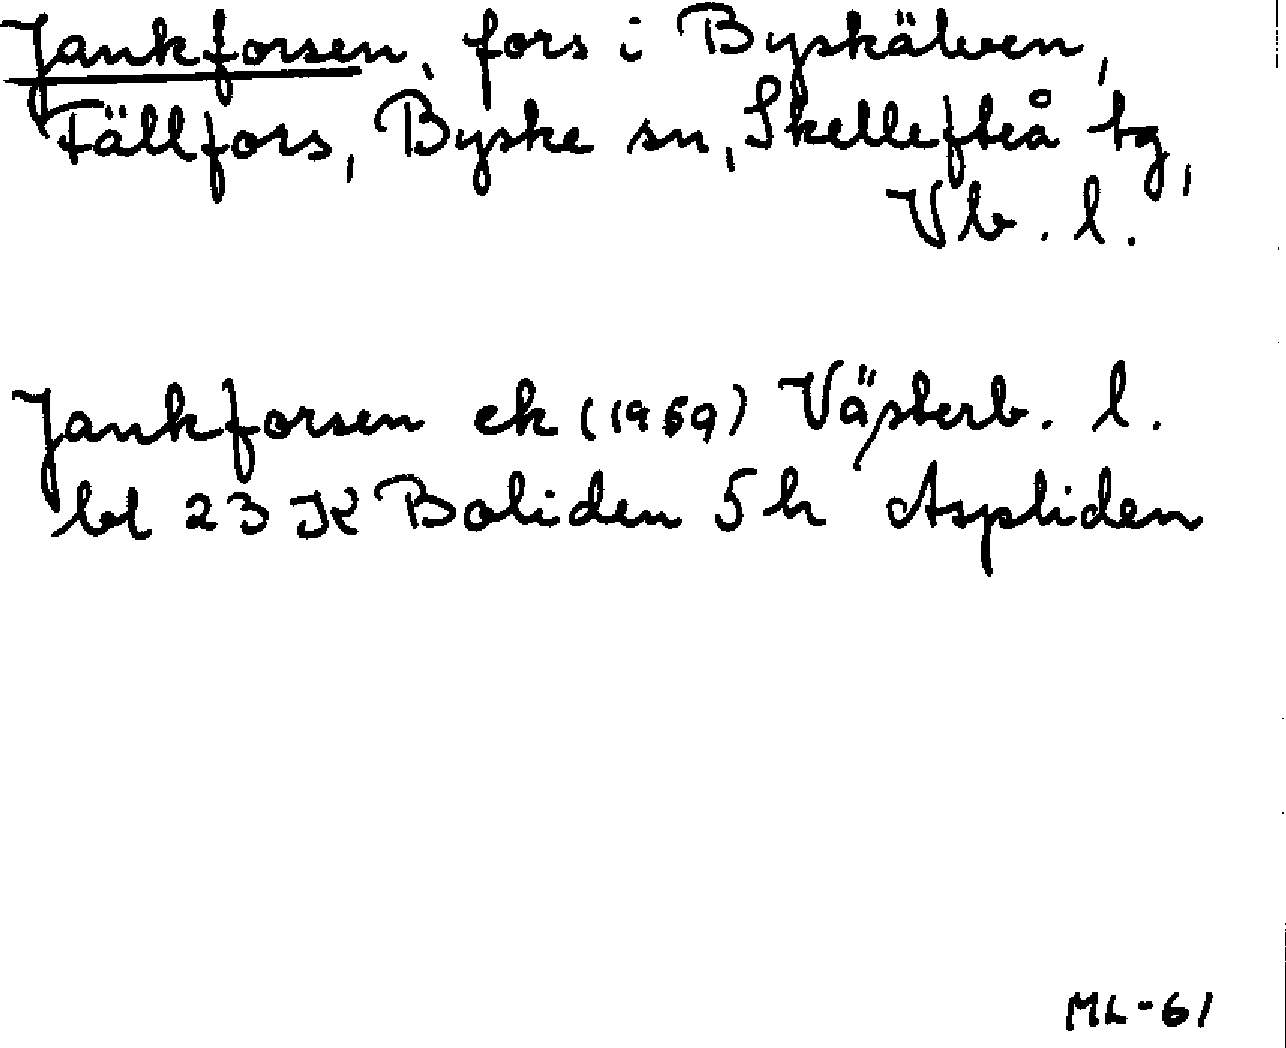 Jankforsen, fors i Byskälven,
Fällfors, Byske sn, Skellefteå tg,
Vb. l.
Jankforsen ek (1959) Västerb. l.
bl 23 K Boliden 5 h Aspliden
ML-61